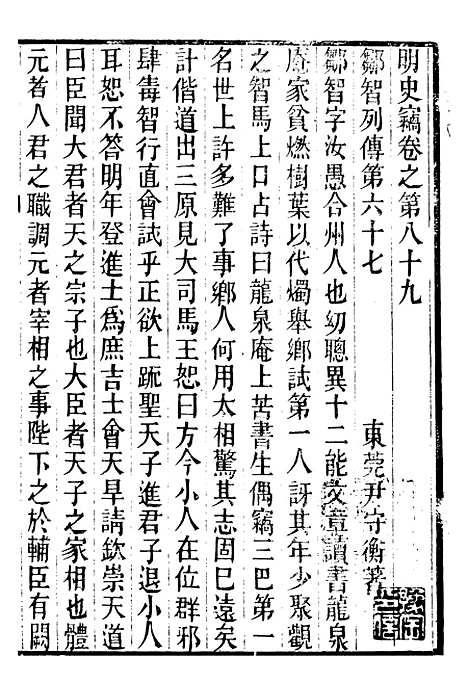 明史竊卷之第八十九
鄒智列傳第六十七
東莞尹守衡著
鄒智字汝愚合州人也幼聰異十二能文章讀書龍泉
家貧燃樹葉以代燭舉鄉試第一人訝其年少聚觀
之智馬上口占詩曰龍泉庵上苦書生偶竊三巴第一
名世上許多難了事鄉人何用太相驚其志固已遠矣
計偕道出三原見大司馬王恕曰方今小人在位群邪
肆毒智行直會試乎正欲上䟽聖天子進君子退小人
耳恕不答明年登進士爲庶吉士會天旱請欽崇天道
曰臣聞大君者天之宗子也大臣者天子之家相也體
元者人君之職調元者宰相之事陛下之於輔臣有闕